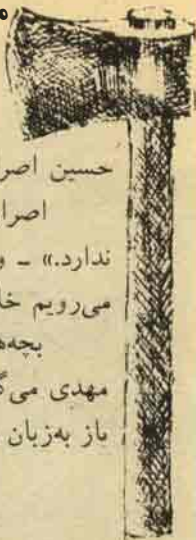 حسین اصر
اصرا
ندارد.» ـ و
می‌رویم خا
بچه‌ه
مهدی می‌گ
باز به‌زبان